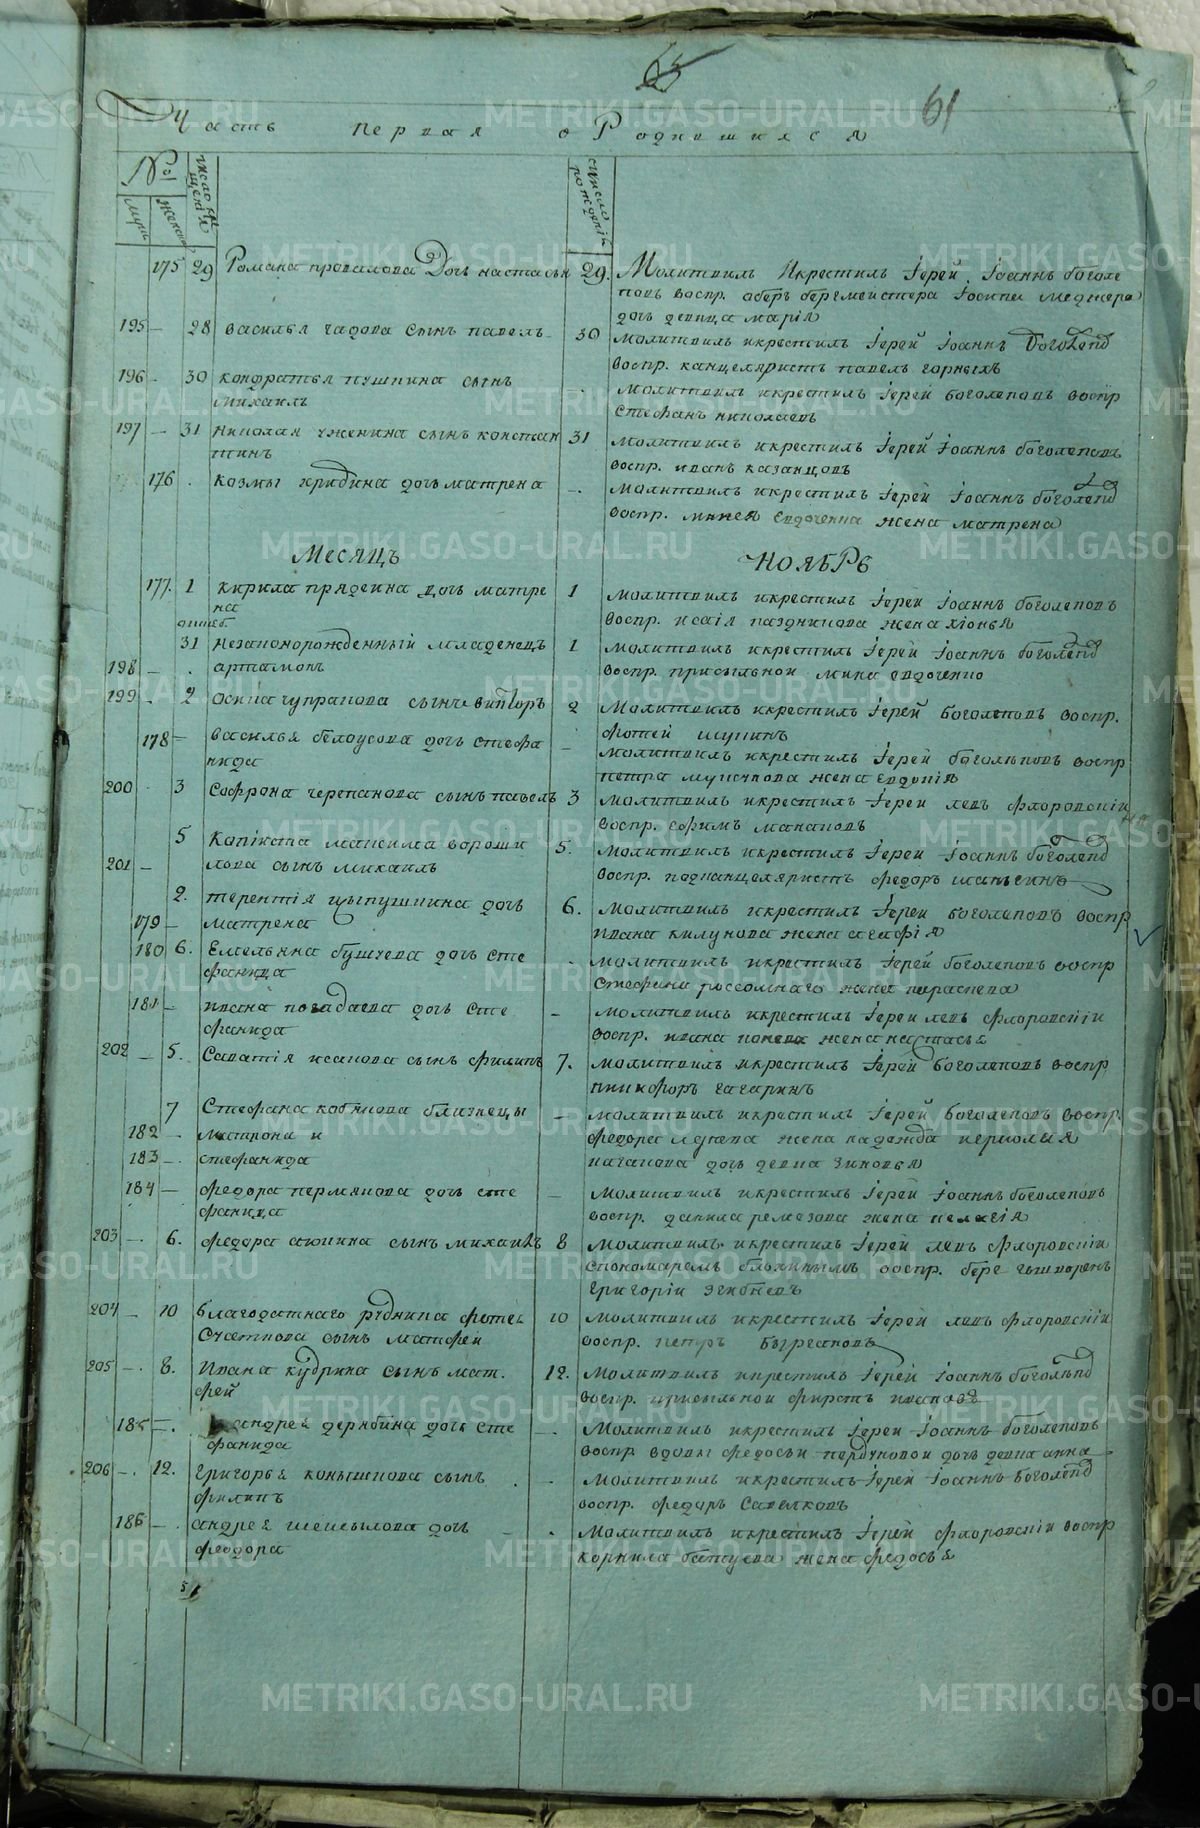 61
Часть первая о Родившихся
№
муж
женска
число рождения
175 29 Романа провалова Дочь настасья 29. Молитвилъ Икрестилъ Iерей Iоаннъ боголе
повъ воспр. оберъ бергмейстера Iосипа Меджера
дочь девица мариа
195 — 28 василья гадова сынъ павелъ 30 молитвилъ икрестилъ Iерей Iоаннъ Боголепо
воспр. канцеляристъ павелъ горныхъ
196 - 30 кондратья пушкина сынъ - молитвилъ икрестилъ Iерей боголеповъ воспр
михаилъ
Стефанъ николаевъ
197 — 31 николая ужекина сынъ констан 31 молитвилъ икрестилъ Iерей Iоаннъ боголеповъ
тинъ
воспр. иванъ казанцовъ
176 . козмы гридина дочь матрена -. молитвилъ икрестилъ Iерей Iоаннъ боголепо
воспр. жена матрена
Месяцъ Ноябрь
177. 1 кирила прядеина дочь матре 1 молитвилъ икрестилъ Iерей Iоаннъ боголеповъ
на
воспр. исаiя паздникова жена хiонья
31 незаконорожденный младенецъ 1 молитвилъ икрестилъ Iерей Iоаннъ боголепо
198 — . артамонъ
воспр. присыльной мина евдоченко
199 - 2 осипа чупракова сынъ викторъ 2 Молитвилъ икрестилъ Iерей боголеповъ воспр.
фотей шупинъ
178 — василья белоусова дочь стефа - молитвилъ икрестилъ Iерей боголеповъ воспр
нида
петра жена евдокiя
200 . 3 Софрона черепанова сынъ павелъ 3 молитвилъ икрестилъ Iерей левъ флоровскiй
воспр. ефимъ макаровъ
5 Капiтона максима вороши 5. молитвилъ икрестилъ Iерей Iоаннъ боголепо
201 — лова сынъ михаилъ
воспр. подканцеляристъ федоръ
2. терентiя цыпушкина дочь 6. молитвилъ икрестилъ Iерей боголеповъ воспр
179 — матрена
ивана килунова жена агафiя
180 6. Емельяна бушуева дочь сте - молитвилъ икрестилъ Iерей боголеповъ воспр
фанида
стефана россольнаго жена параскева
181 — ивана погадаева дочь сте - молитвилъ икрестилъ Iерей левъ флоровскiй
фанида
воспр. ивана попова жена настасья
202 — 5. Саватiя исакова сынъ филипъ 7. молитвилъ икрестилъ Iерей боголеповъ воспр
никифоръ гагаринъ
7 Стефана кобякова близнецы - молитвилъ икрестилъ Iерей боголеповъ воспр.
182 — матрона и
федора лунева жена надежда
183 — стефанида
дочь девка зиновья
184 — федора пермякова дочь сте - молитвилъ икрестилъ Iерей Iоаннъ боголеповъ
фанида
воспр. данила ремезова жена пелагiя
203 — 6. федора аюкина сынъ михаилъ 8 молитвилъ икрестилъ Iерей левъ флоровскiй
спономаремъ воспр. берг гешворенъ
григорiй
204 — 10 благодатнаго рудника фотей 10 молитвилъ икрестилъ Iерей левъ флоровскiй
Счастнова сынъ матфей
воспр. петръ
205 — 8. Ивана кудрина сынъ мат. 12. молитвилъ икрестилъ Iерей Iоаннъ боголепо
фей
воспр. присыльной фирстъ ивановъ
185 —. андрея дерябина дочь сте —. молитвилъ икрестилъ Iерей Iоаннъ боголеповъ
фанида
воспр вдовы федосьи дочь девка анна
206 —. 12. григорья конышкова сынъ - молитвилъ икрестилъ Iерей Iоаннъ боголепо
филипъ
воспр. федоръ савелковъ
186 — андрея дочь - . молитвилъ икрестилъ Iерей флоровскiй воспр
феодора
корнила батуева жена федосья
METRIKI.GASO-URAL.RU